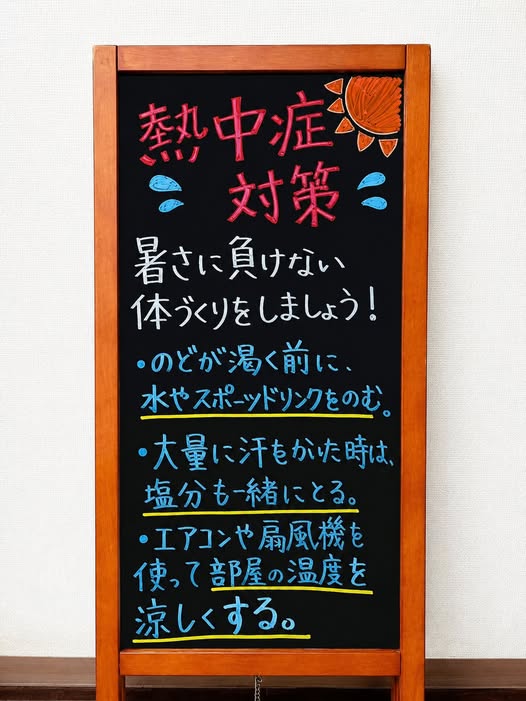 熱中症
対策
暑さに負けない
体づくりをしましょう！
・のどが渇く前に、
水やスポーツドリンクをのむ。
・大量に汗をかいた時は、
塩分も一緒にとる。
・エアコンや扇風機を
使って部屋の温度を
涼しくする。